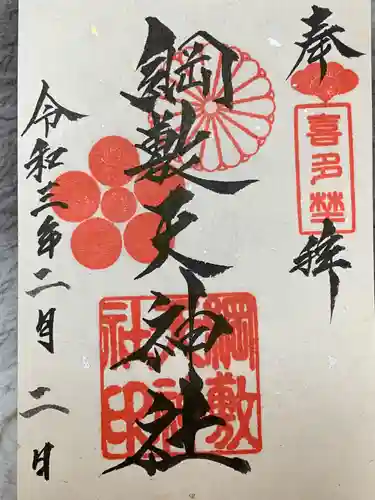 奉拝
喜多埜
綱敷天神社
綱敷
天神
社印
令和三年二月二日